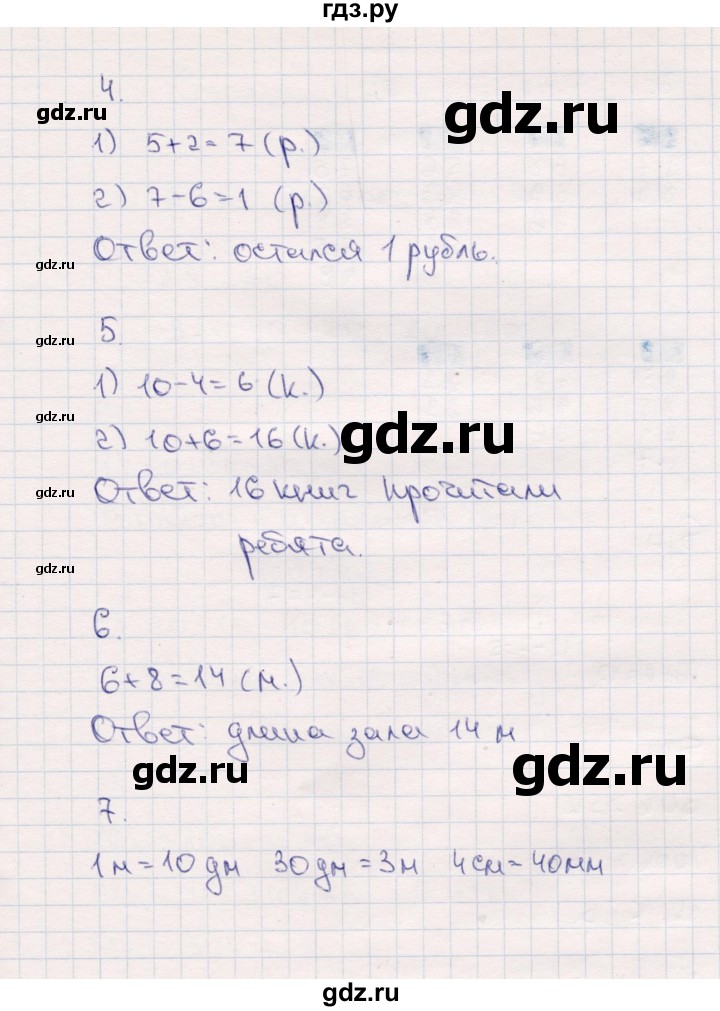 гдз.ру
4.
gdz.ru
gdz.ru
1) 5+2=7 (р.)
2) 7-6=1 (р.)
Ответ: остался 1 рубль.
gdz.ru
5.
gdz.ru
1) 10-4=6 (к.)
gdz.ru
2) 10+6=16 (к.)
gdz.ru
Ответ: 16 книг прочитали
gdz.ru
ребята.
gdz.ru
6.
6+8=14 (м.)
Ответ: длина зала 14 м
gdz.ru
gdz.ru
7.
1м=10дм 30дм=3м 4см=40мм
gdz.ru